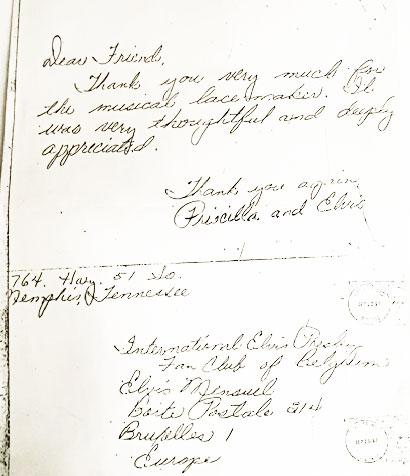 Dear Friend,
Thank you very much for
the musical lace maker. It
was very thoughtful and deeply
appreciated.
Thank you again,
Priscilla and Elvis
764. Hwy. 51 So.
Memphis, Tennessee
International Elvis Presley
Fan Club of Belgium
Elvis Mensuel
Boite Postale 214
Bruxelles 1
Europe